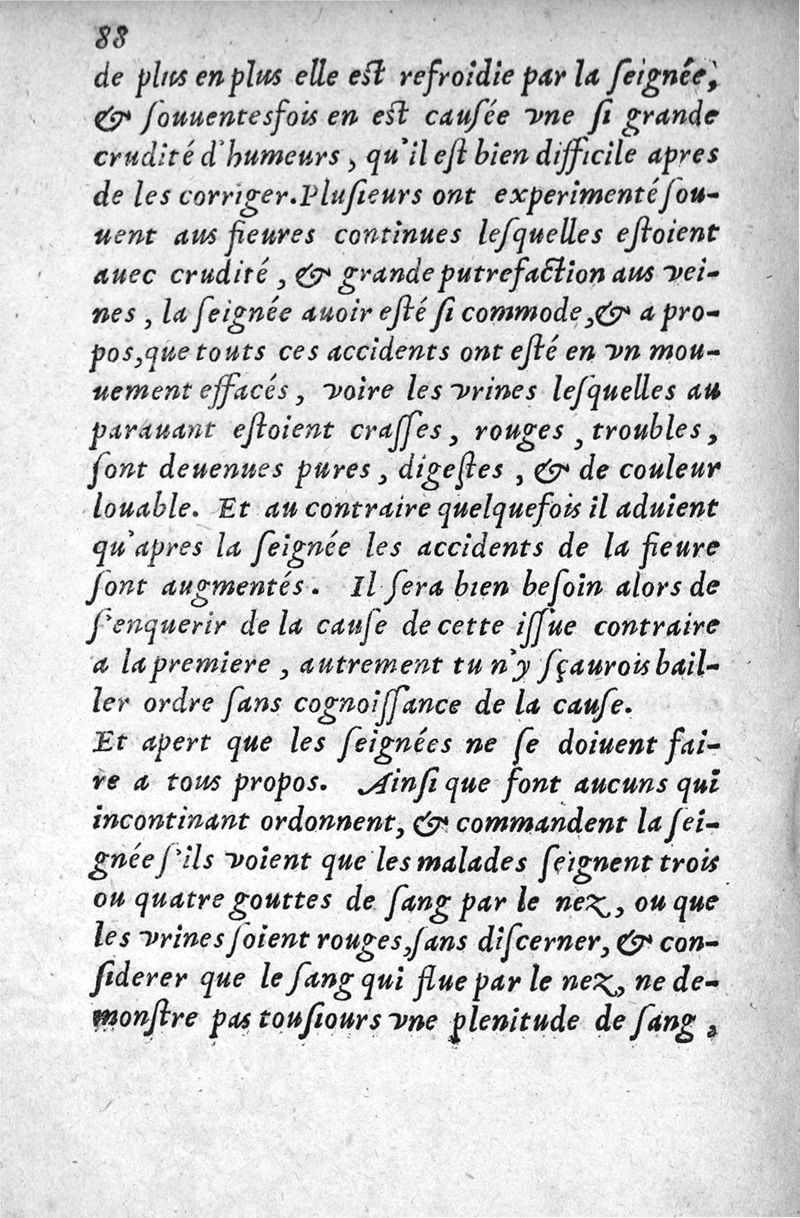 88
de plus en plus elle est refroidie par la ſeignée,
& ſouuentesfois en est cauſée vne ſi grande
crudité d'humeurs, qu'il eſt bien difficile apres
de les corriger. Pluſieurs ont experimenté ſou-
uent aus fieures continues leſquelles eſtoient
auec crudité, & grande putrefaction aus vei-
nes, la ſeignée auoir eſté ſi commode, & a pro-
pos, que touts ces accidents ont eſté en vn mou-
uement effacés, voire les vrines leſquelles au
parauant eſtoient craſſes, rouges, troubles,
ſont deuenues pures, digeſtes, & de couleur
louable. Et au contraire quelquefois il aduient
qu'apres la ſeignée les accidents de la fieure
ſont augmentés. Il ſera bien beſoin alors de
ſ'enquerir de la cauſe de cette iſſue contraire
a la premiere, autrement tu n'y ſçaurois bail-
ler ordre ſans cognoiſſance de la cauſe.
Et apert que les ſeignées ne ſe doiuent fai-
re a tous propos. Ainſi que font aucuns qui
incontinant ordonnent, & commandent la ſei-
gnée ſ'ils voient que les malades ſeignent trois
ou quatre gouttes de ſang par le nez, ou que
les vrines ſoient rouges, ſans diſcerner, & con-
ſiderer que le ſang qui flue par le nez, ne de-
monſtre pas touſiours vne plenitude de ſang,